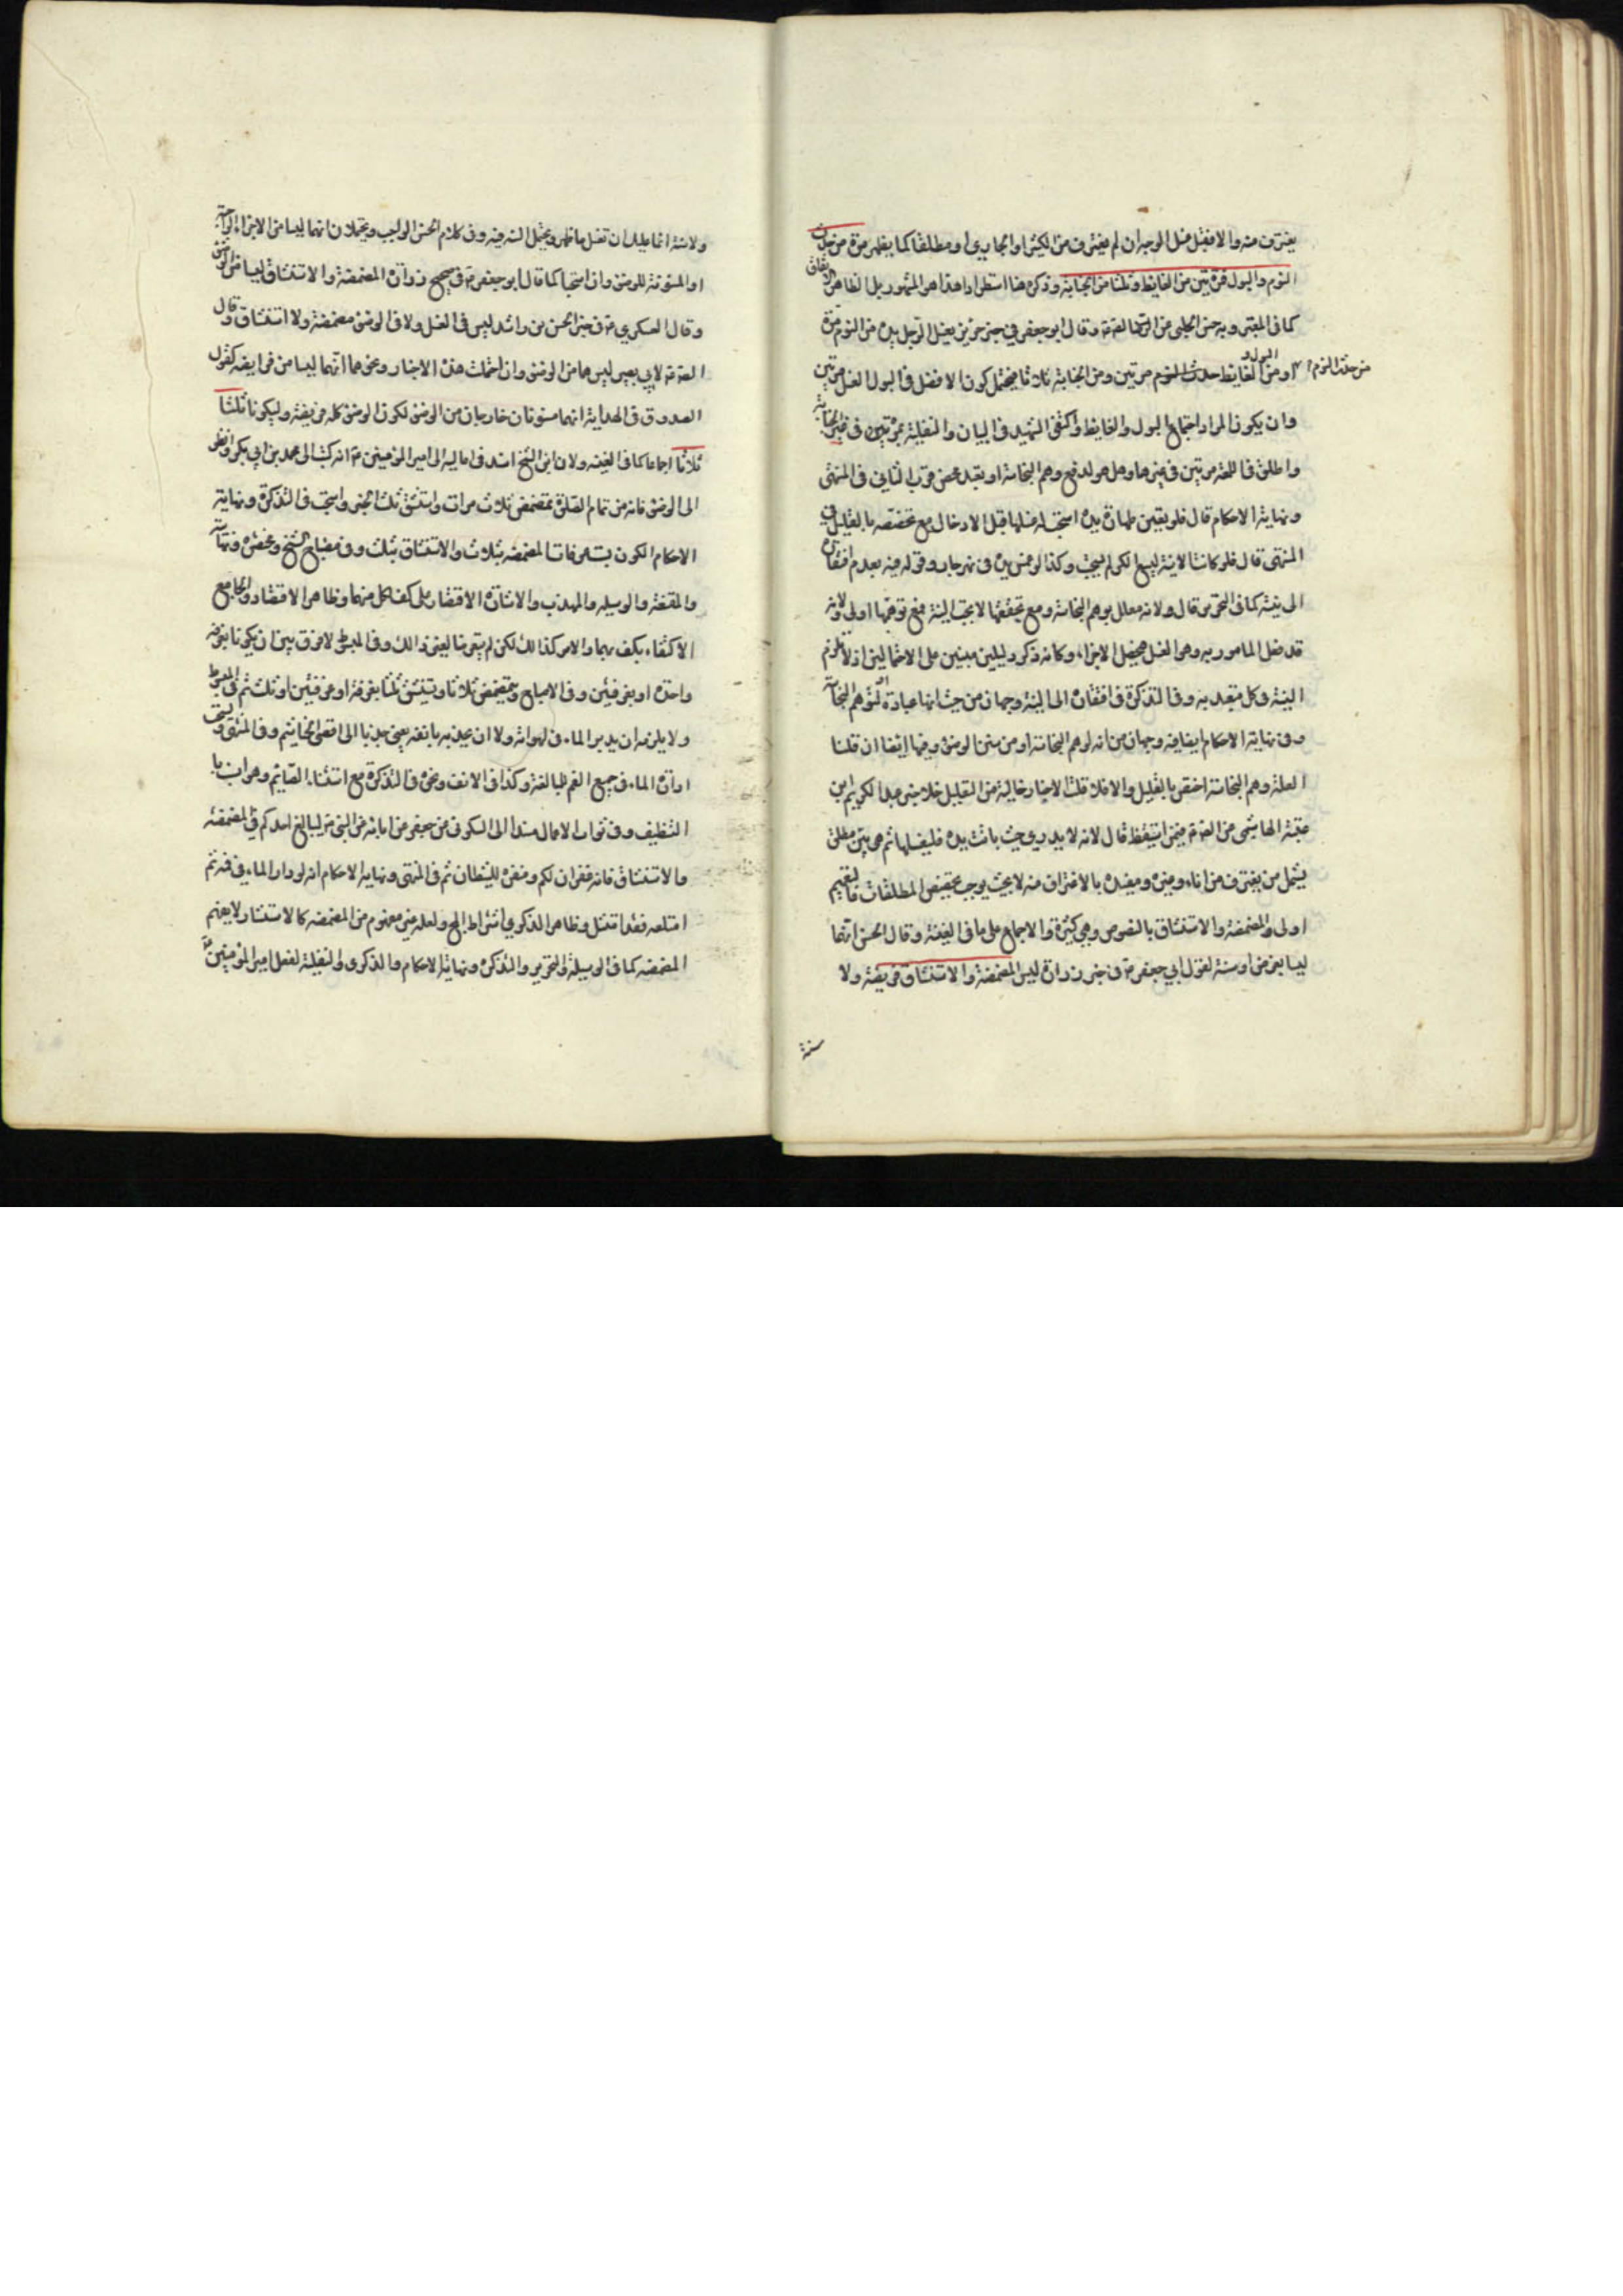 يغترف منه والا فقبل غسل الوجه ان لم يغترف من الكثير او الجاري او مطلقا كما يظهر مرة من حدث
النوم والبول فمرتين من الغايط وثلثا من الجنابة وذكره هنا استطرادا هذا هو المشهور بل الظاهر الاتفاق
كما في المعتبر وبه حسن الحلبي عن الصادق ع وقال ابو جعفر ع في خبر حريز يغسل الرجل يده من النوم مرة
ومن الغايط والبول مرتين ومن الجنابة ثلاثا فيحتمل كون الافضل في البول الغسل مرتين
من حدث النوم
وان يكون المراد اجتماع البول والغايط واكتفى الشهيد في البيان والنفلية بمرتين في غير الجنابة
واطلق في اللمعة مرتين في غيرها وهل هو لدفع وهم النجاسة او تعبد محض قرب الثاني في المنتهى
ونهاية الاحكام قال فلو يتقن طهارة يده استحب له غسلها قبل الادخال مع تخصيصه بالقليل في
المنتهى قال فلو كانت الانية لا يسع الكر لم يستحب وكذا لو غمس يده في نهر جار وقوله فيه بعدم افتقاره
الى نية كما في التحرير قال ولانه معلل بوهم النجاسة ومع تحققها لا يجب النية فمع توهمها اولى ولانه
قد فعل المامور به وهو الغسل فيحصل الاجزاء وكانه ذكر دليلين مبنيين على الاحتمالين اذ لا تلزم
النية في كل متعبد به وفي التذكرة في افتقاره الى النية وجهان من حيث انها عبادة او لتوهم النجاسة
وفي نهاية الاحكام ايضا فيه وجهان من انه لوهم النجاسة او من سنن الوضوء وفيها ايضا ان قلنا
العلة وهم النجاسة اختص بالقليل والا فلا قلت الاخبار خالية من التقليل خلا خبر عبد الكريم ابن
عتبة الهاشمي عن الصادق ع فيمن استيقظ قال لانه لا يدري حيث باتت يده فليغسلها ثم هو بين مطلق
يشمل من يغترف من اناء وغيره ومقيد بالاغتراف منه لا بحيث يوجب تخصيص المطلقات فالتعميم
اولى والمضمضة والاستنشاق بالنصوص وهي كثيرة والاجماع على ما في الغنية وقال الحسن انهما
ليسا بفرض او سنة لقول ابي جعفر ع في خبر زرارة ليس المضمضة والاستنشاق فريضة ولا
سنة
ولا سنة انما عليك ان تغسل ما ظهر ويحتمل السنة فيه وفي كلام الحسن الواجب ويحتملان انهما ليسا من الاجزاء الواجبة
او المسنونة للوضوء وان استحبا كما قال ابو جعفر ع في صحيح زرارة المضمضة والاستنشاق ليسا من الوضوء
وقال العسكري ع في خبر الحسن بن راشد ليس في الغسل ولا في الوضوء مضمضة ولا استنشاق وقال
الصادق ع لابي بصير ليس هما من الوضوء وان احتملت هذه الاخبار ونحوها انهما ليسا من فرايضه كقول
الصدوق في الهداية انهما مسنونان خارجان من الوضوء لكون الوضوء كله فريضة وليكونا ثلثا
ثلاثا اجماعا كما في الغنية ولان ابن الشيخ اسند في اماليه الى امير المؤمنين ع انه كتب الى محمد بن ابي بكر وانظر
الى الوضوء فانه من تمام الصلوة تمضمض ثلاث مرات واستنشق ثلثا الخبر واستحب في التذكرة ونهاية
الاحكام الكون بست غرفات المضمضة بثلاث والاستنشاق بثلث وفي مصباح الشيخ ومختصره ونهايته
والمقنعة والوسيلة والمهذب والاشارة الاقتصار على كف لكل منهما وظاهر الاقتصاد والجامع
الاكتفاء بكف بهما والامر كذلك لكن لم يتعرضا لغير ذلك وفي المبسوط لا فرق بين ان يكونا بغرفة
واحدة او بغرفتين وفي الاصباح ويتمضمض ثلاثا ويستنشق ثلثا بغرفة او غرفتين او ثلث ثم في المبسوط
ولا يلزمه ان يدير الماء في لهواته ولا ان يجذبه بانفه يعني جذبا الى اقصى الخياشيم وفي المنتهى ويستحب
ادارة الماء في جميع الفم للمبالغة وكذا في الانف ونحوه في التذكرة مع استثناء الصائم وهو انسب با
التنظيف وفي ثواب الاعمال مسندا الى السكوني عن جعفر عن ابائه عن النبي ص ليبالغ احدكم في المضمضة
والاستنشاق فانه غفران لكم ومنفرة للشيطان ثم في المنتهى ونهاية الاحكام انه لو ادار الماء في فيه ثم
ابتلعه فقد امتثل وظاهر الذكرى اشتراط المج ولعله غير مفهوم من المضمضة كالاستنثار ولا يعلم
المضمضة كما في الوسيلة والتحرير والتذكرة ونهاية الاحكام والذكرى والنفلية لفعل امير المؤمنين ع